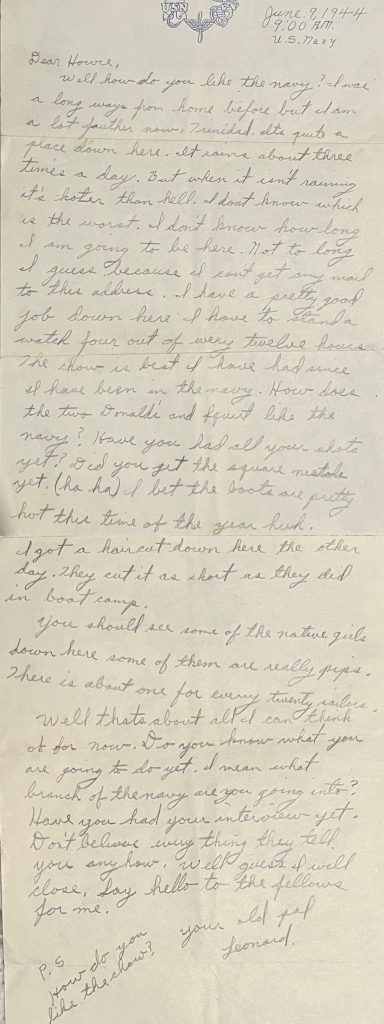 USN
June 9, 1944
9:00 A.M.
U.S. Navy
Dear Howie,
Well how do you like the navy? I was
a long ways from home before but I am
a lot farther now. Trinidad. Its quite a
place down here. It rains about three
times a day. But when it isn't raining
it's hoter than hell. I don't know which
is the worst. I don't know how long
I am going to be here. Not to long
I guess because I cant get any mail
to this address. I have a pretty good
job down here I have to stand a
watch four out of every twelve hours
The chow is best I have had since
I have been in the navy. How does
the two Donalds and like the
navy? Have you had all your shots
yet? Did you get the square
yet. (ha ha) I bet the boots are pretty
hot this time of the year huh.
I got a haircut down here the other
day. They cut it as short as they did
in boot camp.
You should see some of the native girls
down here some of them are really pips.
There is about one for every twenty sailors.
Well thats about all I can think
of for now. Do you know what you
are going to do yet. I mean what
branch of the navy are you going into?
Have you had your interview yet.
Don't believe every thing they tell
you anyhow. Well guess I will
close, Say hello to the fellows
for me.
your old pal
Leonard.
P.S
How do you
like the chow?